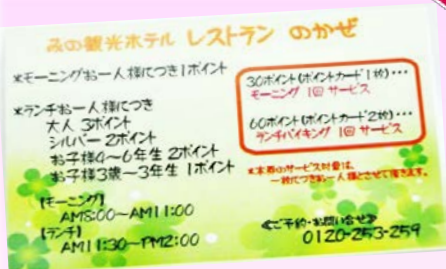 みの観光ホテル レストラン のかぜ
*モーニングお一人様につき1ポイント
*ランチお一人様につき
大人 3ポイント
シルバー 2ポイント
お子様4〜6年生 2ポイント
お子様3歳〜3年生 1ポイント
【モーニング】
AM8:00〜AM11:00
【ランチ】
AM11:30〜PM2:00
30ポイント(ポイントカード1枚)…
モーニング 1回 サービス
60ポイント(ポイントカード2枚)…
ランチバイキング 1回 サービス
*本券のサービス対象は、
一枚につきお一人様とさせて頂きます。
≪ご予約・お問い合せ≫
0120-253-259